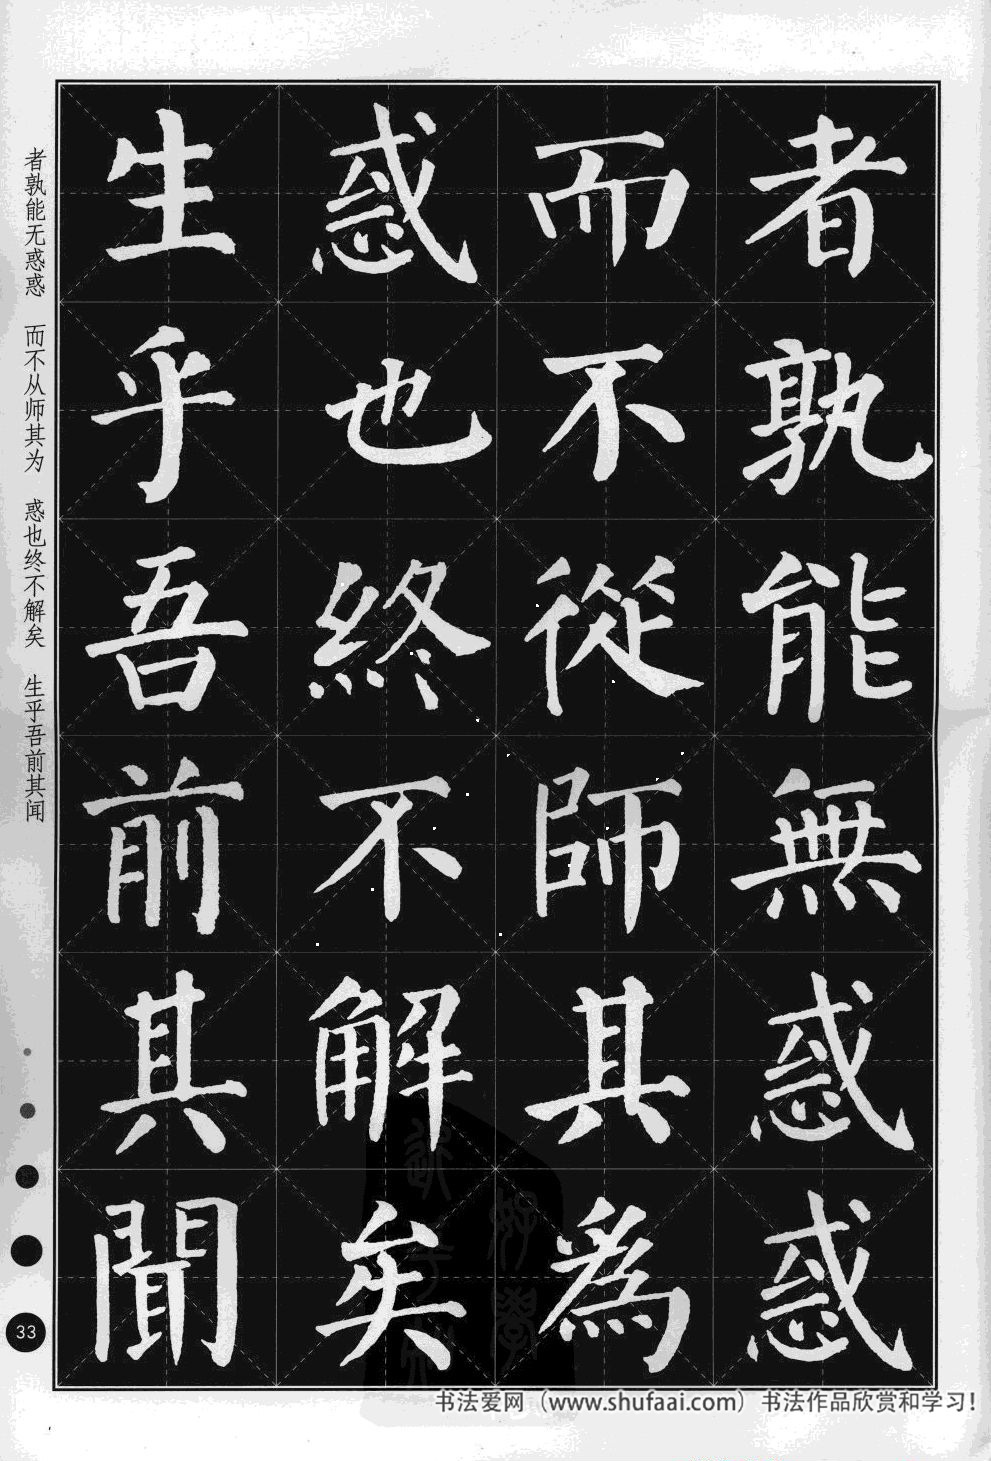 者孰能無惑惑
而不從師其為
惑也終不解矣
生乎吾前其聞
者孰能无惑惑 而不从师其为 惑也终不解矣 生乎吾前其闻
33
书法爱网（www.shufaai.com）书法作品欣赏和学习!